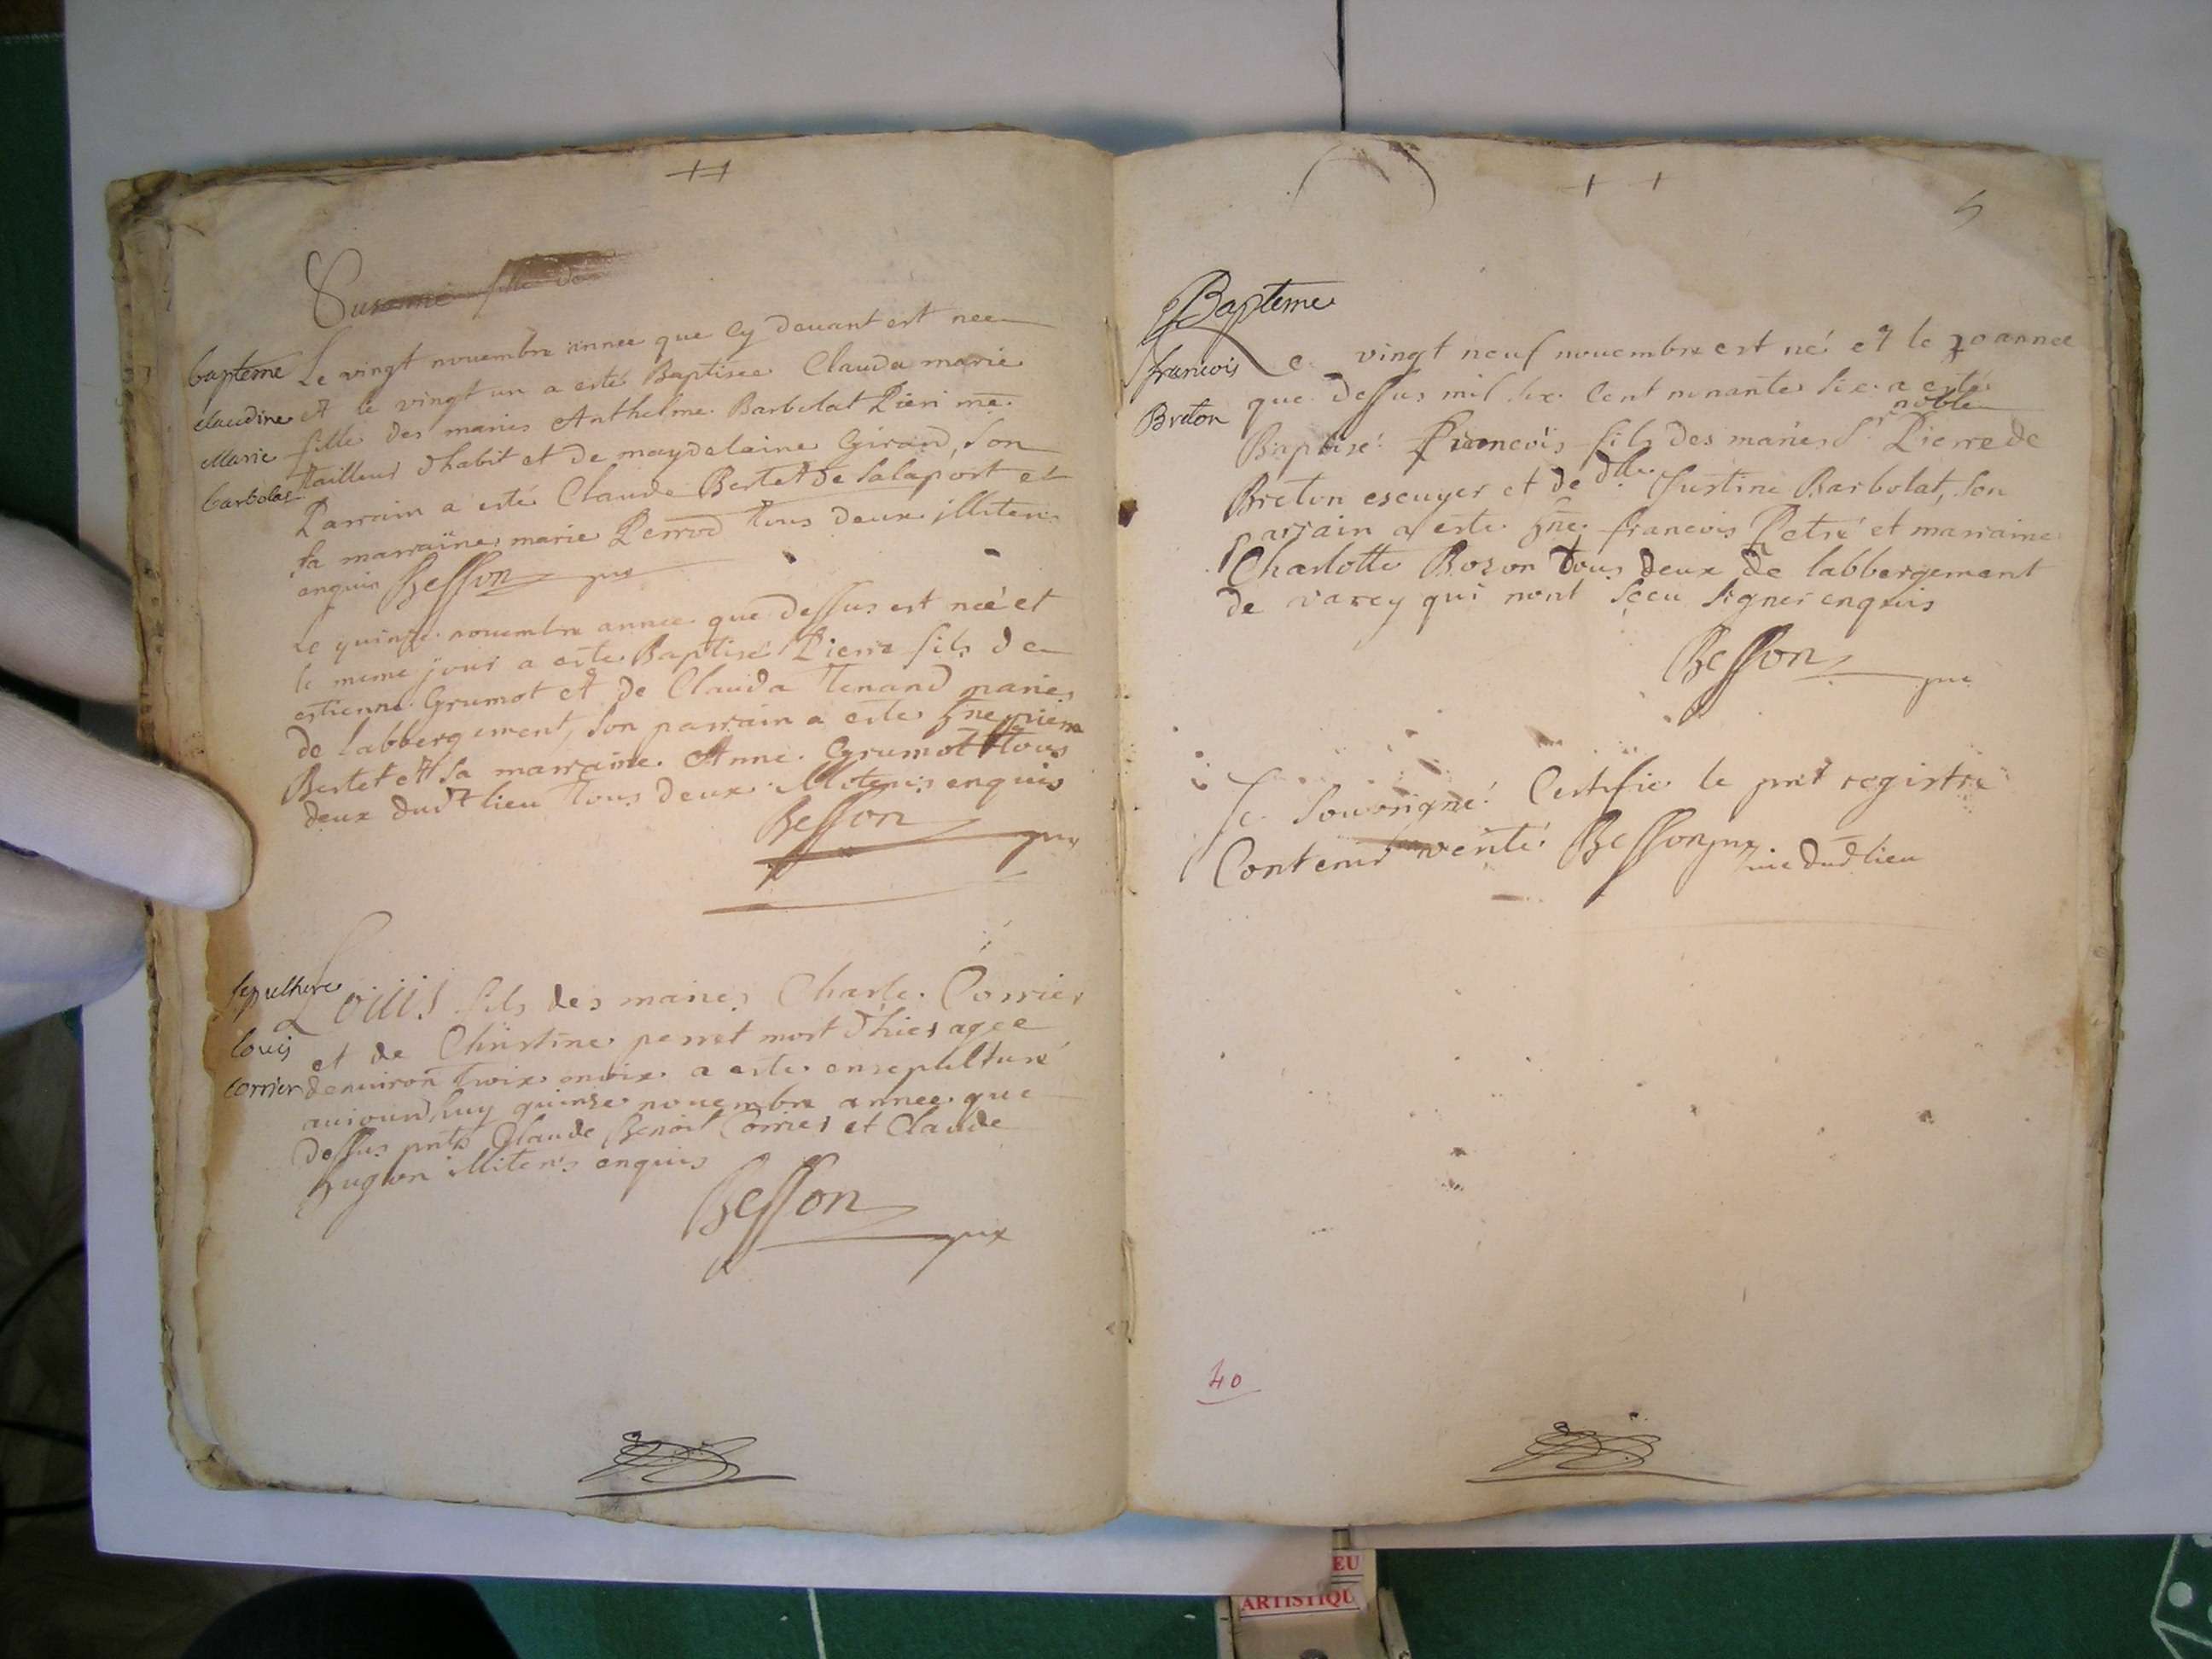 Susanne fille de
Le vingt nouembre annee que cy deuant est nee
et le vingt un a esté Baptisee Clauda marie
fille des mariés Anthelme Barbolat Pieri me.
tailleur dhabit et de maydelaine Girand, son
Parrain a esté Claude Bertet de Lalaport et
sa marraine marie Perrod tous deux illiteris
enquis Besson
bapteme
claudine
Marie
barbolat
Le quinze nouembre annee que dessus est neé et
le meme jour a esté Baptisé Pierre fils de
estienne Grumot et de Clauda Tenand mariés
de labbergement, son parrain a esté hne pierre
Bertet et sa marraine Anne Grumot tous
deux dudt lieu tous deux illiteris enquis
Besson
Sepulture
louis
corrier
Loüis fils des mariés Charle Corrier
et de Christine perret mort d'hier agee
denuiron troix moix a esté ensepulturé
auiourdhuy quinze nouembre annee que
dessus pnts Claude Benoit Corrier et Claude
hugon illiteris enquis
Besson
5
Bapteme
francois
Breton
Le vingt neuf nouembre est né et le 30 annee
que dessus mil six cent nonante six a esté
noble
Baptisé francois fils des mariés Sr Pierre de
Breton escuyer et de dlle Justine Barbolat, son
parrain a esté hne francois Petré et marraine
Charlotte Bozon tous deux de labbergement
de varey qui nont sceu signer enquis
Besson
Je soussigné Certifie le pnt registre
Contenir verité Besson
dud lieu
40
EU
ARTISTIQU